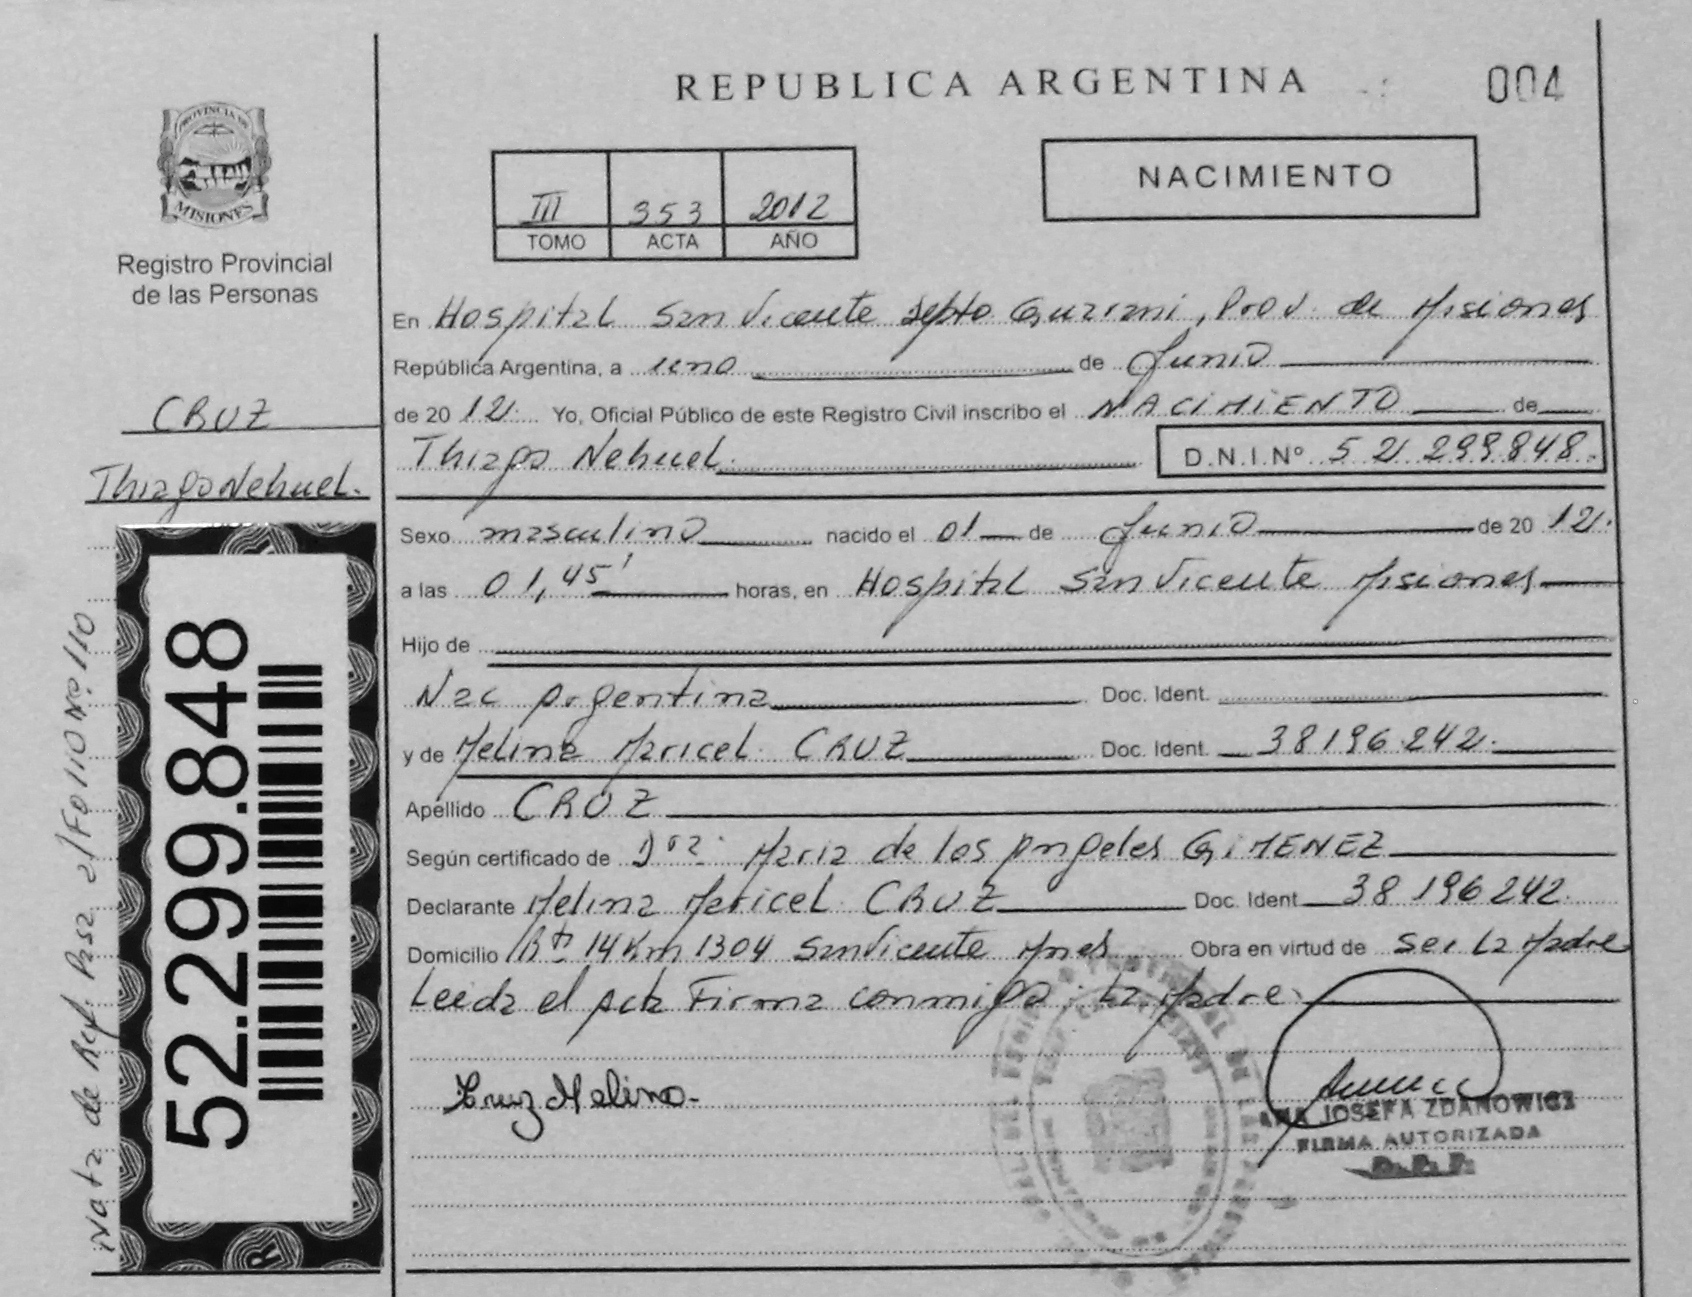 REPUBLICA ARGENTINA
004
PROVINCIA DE
MISIONES
Registro Provincial
de las Personas
III 353 2012
TOMO ACTA AÑO
NACIMIENTO
En Hospital San Vicente Depto Guarani, Prov. de Misiones
República Argentina, a uno de Junio
de 2012. Yo, Oficial Público de este Registro Civil inscribo el NACIMIENTO de
Thiago Nehuel. D.N.I.Nº 52 299.848.
CRUZ
Thiago Nehuel.
Sexo masculino nacido el 01 de Junio de 2012.
a las 01,45' horas, en Hospital San Vicente Misiones
Hijo de
Nac Argentina Doc. Ident.
y de Melina Maricel CRUZ Doc. Ident. 38196.242.
Apellido CRUZ
Según certificado de Dra. Maria de los Angeles GIMENEZ
Declarante Melina Maricel CRUZ Doc. Ident 38 196 242.
Domicilio Rta 14 Km 1304 San Vicente Mnes Obra en virtud de ser La Madre
Leida el Acta Firma conmigo: La Madre.
Cruz Melina.-
ANA JOSEFA ZDANOWICZ
FIRMA AUTORIZADA
52.299.848
Nota de Ref. Pasa a/Folio Nº 110